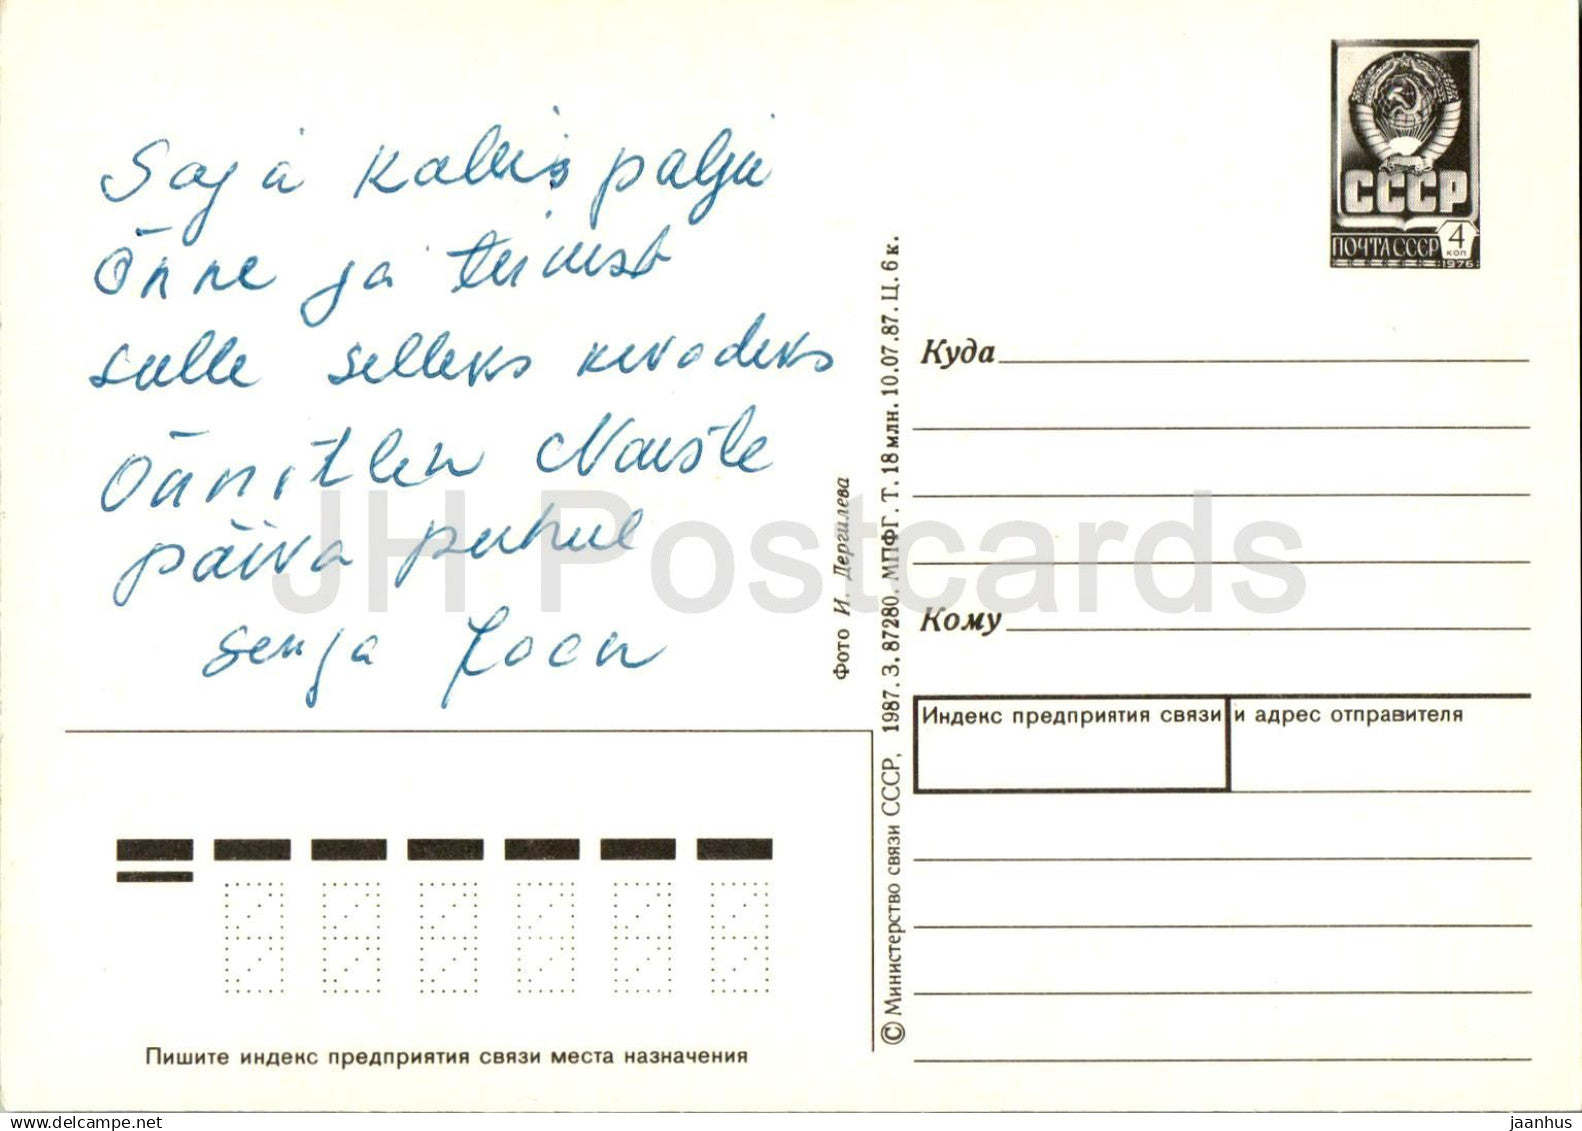 Saja kallis palju
Õnne ja tervist
sulle selleks kevadeks
Õnnitlen Naiste
päeva puhul
Senja
ПОЧТА СССР 4 КОП 1976
СССР
Куда
Кому
Индекс предприятия связи и адрес отправителя
Фото И. Дергилева
© Министерство связи СССР, 1987. З. 87280. МПФГ. Т. 18 млн. 10.07.87. Ц. 6 к.
Пишите индекс предприятия связи места назначения
JH Postcards
www.delcampe.net
jaanhus